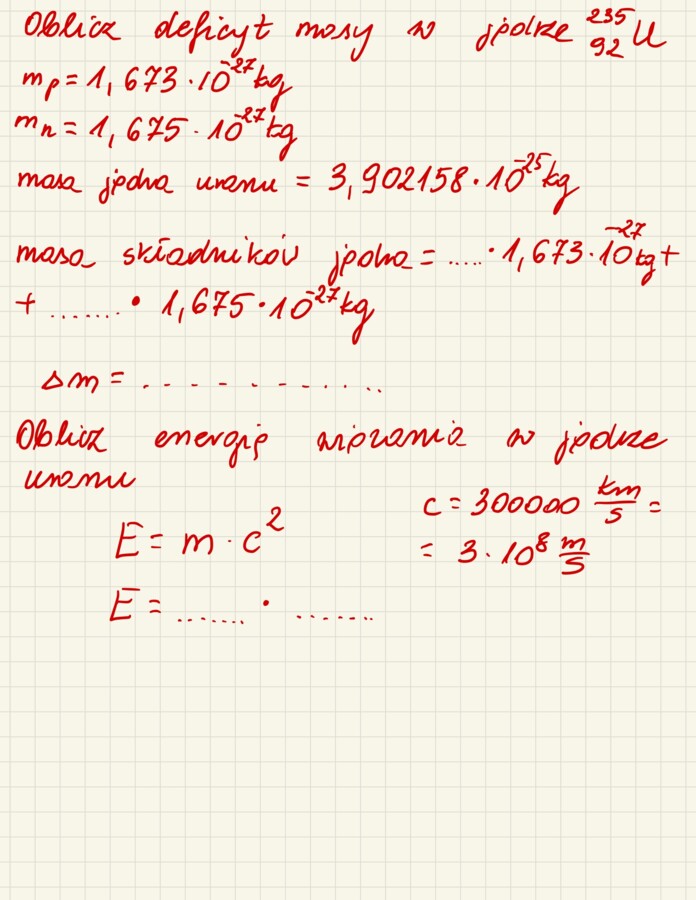 Oblicz deficyt masy w jądrze ²³⁵₉₂U
mp = 1,673 · 10⁻²⁷ kg
mn = 1,675 · 10⁻²⁷ kg
masa jądra uranu = 3,902158 · 10⁻²⁵ kg
masa składników jądra = ..... · 1,673 · 10⁻²⁷ kg +
+ ....... · 1,675 · 10⁻²⁷ kg
Δm = . . . . . . . . . . . .
Oblicz energię wiązania w jądrze
uranu
c = 300000 km/s =
E = m · c²
= 3 · 10⁸ m/s
E = ....... · .......